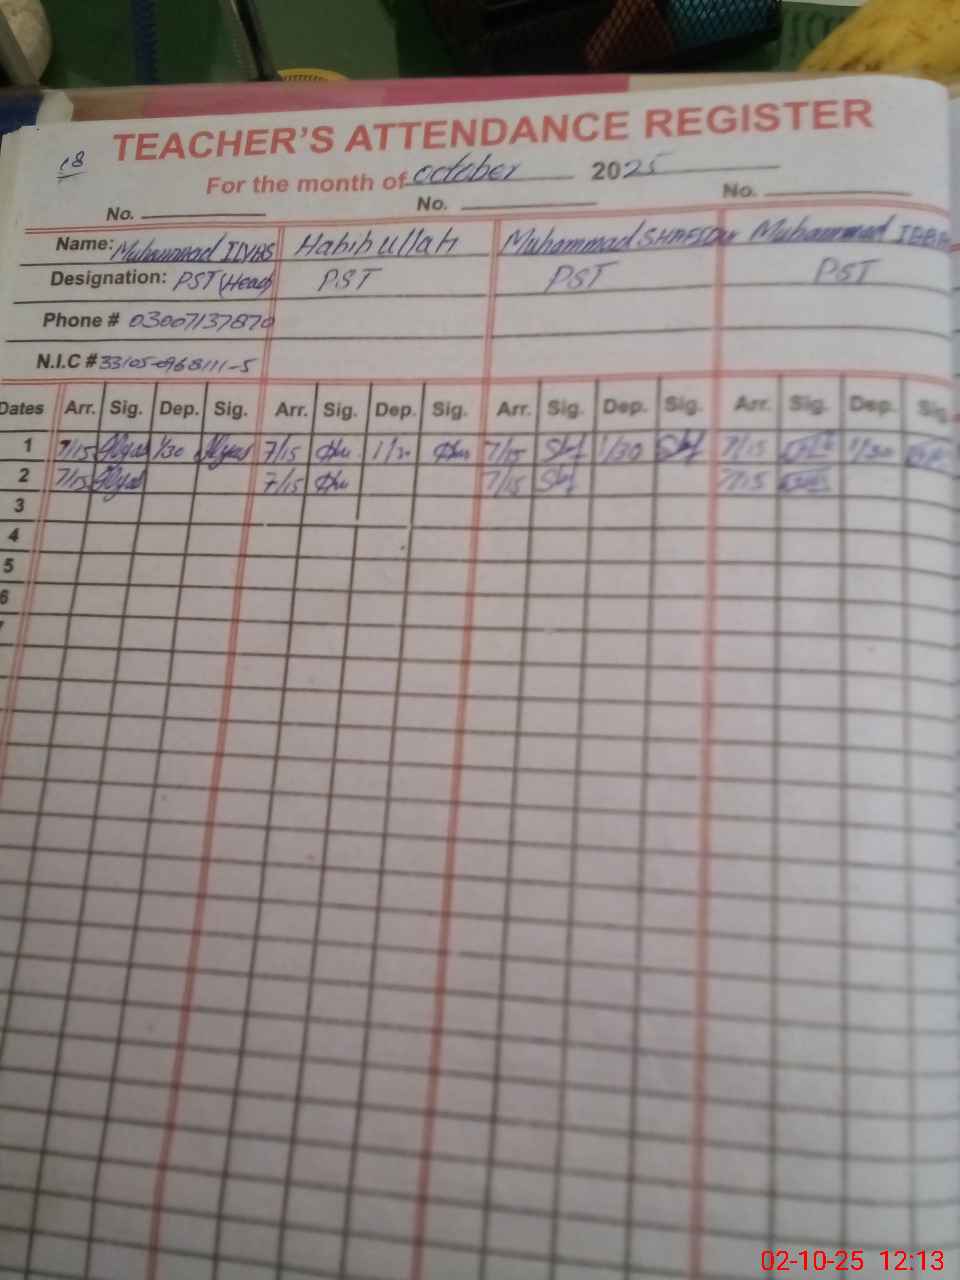 18
TEACHER'S ATTENDANCE REGISTER
For the month of october 2025
No. No. No.
Name: Muhammad ILYAS Habib ullah Muhammad Muhammad
Designation: PST (Head) PST PST PST
Phone # 03007137870
N.I.C # 33105-0968111-5
Dates Arr. Sig. Dep. Sig. Arr. Sig. Dep. Sig. Arr. Sig. Dep. Sig. Arr. Sig. Dep. Sig.
1 7/15 Ilyas 1/30 Ilyas 7/15 1/30 7/15 1/30 7/15 1/30
2 7/15 Ilyas 7/15 7/15 7/15
3
4
5
6
7
02-10-25 12:13